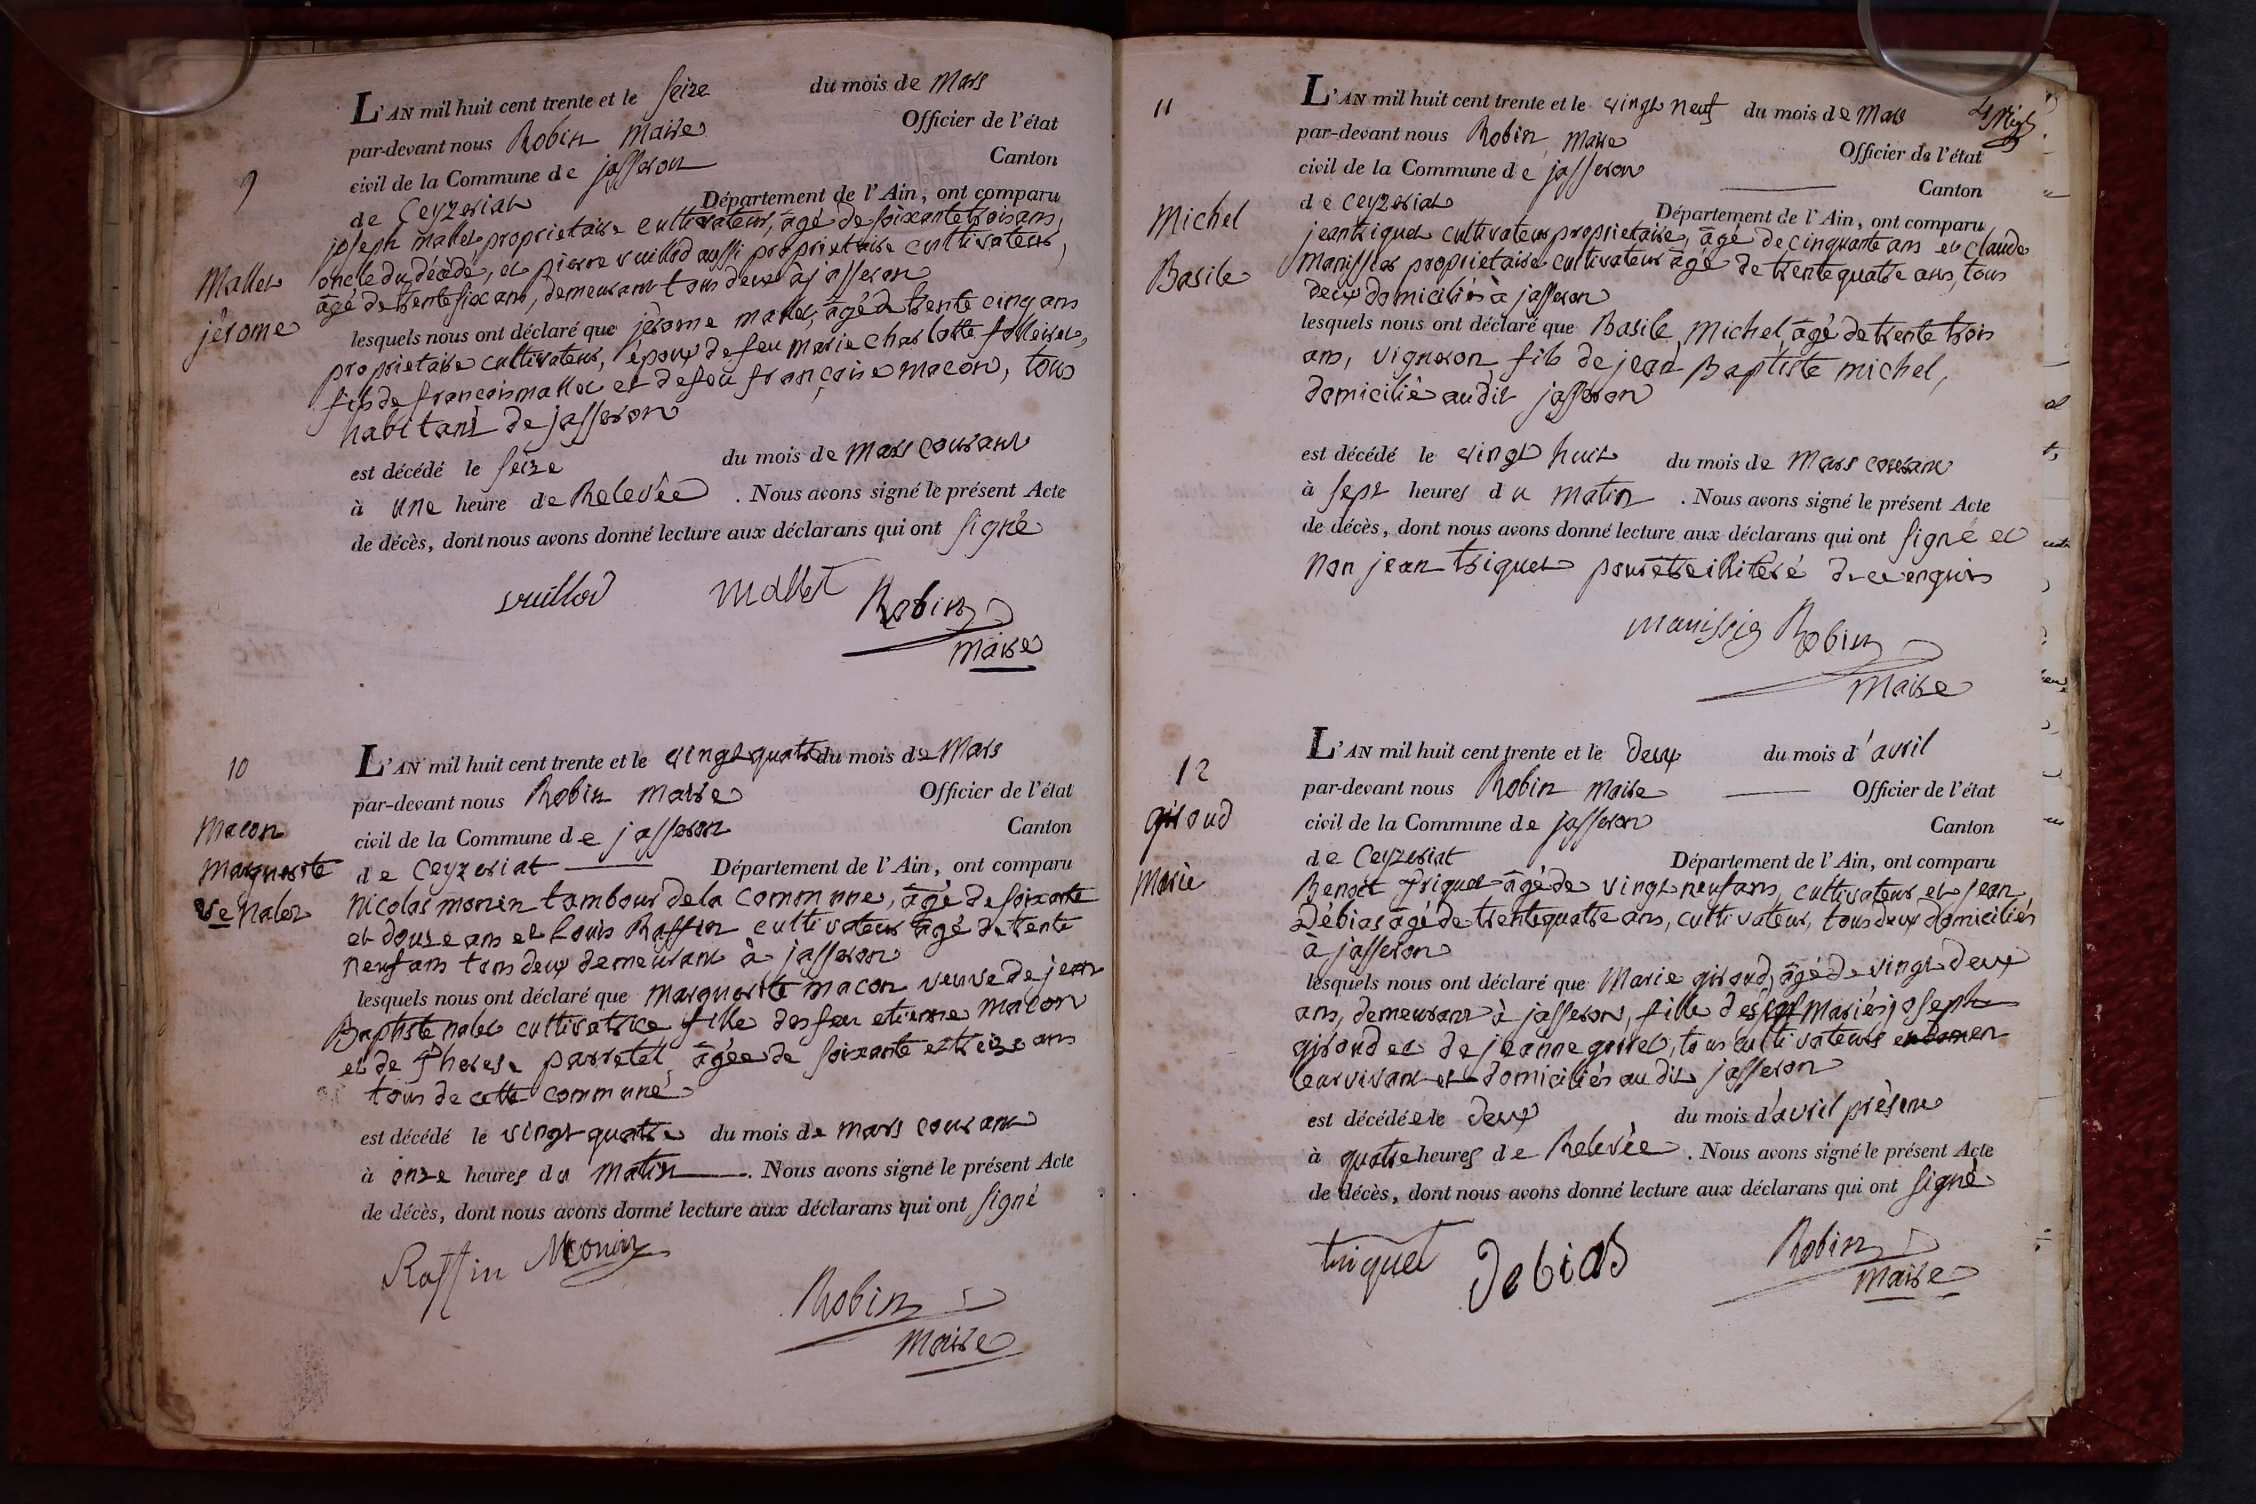 9
Mallet
jérome
L'AN mil huit cent trente et le seize du mois de Mars
par-devant nous Robin Maire Officier de l'état
civil de la Commune de jasseron Canton
de Ceyzeriat Département de l'Ain, ont comparu
joseph mallet proprietaire cultivateur, âgé de soixante trois ans,
oncle du décédé, et pierre vuillod aussi proprietaire cultivateur,
âgé de trente six ans, demeurant tous deux à jasseron
lesquels nous ont déclaré que jérome mallet, âgé de trente cinq ans
proprietaire cultivateur, époux de feu marie charlotte
fils de francois mallet et de feu françoise macon, tous
habitant de jasseron
est décédé le seize du mois de mars courant
à une heure de Relevée . Nous avons signé le présent Acte
de décès, dont nous avons donné lecture aux déclarans qui ont signé
vuillod mallet Robin
maire
10
Macon
Marguerite
ve Nalet
L'AN mil huit cent trente et le vingt quatre du mois de Mars
par-devant nous Robin Maire Officier de l'état
civil de la Commune de jasseron Canton
de Ceyzeriat Département de l'Ain, ont comparu
Nicolas monin tambour de la commune, âgé de soixante
et douze ans et louis Raffin cultivateur âgé de trente
neuf ans tous deux demeurant à jasseron
lesquels nous ont déclaré que marguerite macon veuve de jean
Baptiste nalet cultivatrice fille des feu etienne macon
et de Therese parretet âgée de soixante et treize ans
tous de cette commune
est décédé le vingt quatre du mois de mars courant
à onze heures du matin . Nous avons signé le présent Acte
de décès, dont nous avons donné lecture aux déclarans qui ont signé
Raffin Monin
Robin
maire
11
Michel
Basile
L'AN mil huit cent trente et le vingt neuf du mois de Mars
par-devant nous Robin, maire Officier de l'état
civil de la Commune de jasseron Canton
de Ceyzeriat Département de l'Ain, ont comparu
jean triquet cultivateur proprietaire, âgé de cinquante ans et claude
manissier proprietaire cultivateur âgé de trente quatre ans, tous
deux domiciliés à jasseron
lesquels nous ont déclaré que Basile Michel, âgé de trente trois
ans, vigneron fils de jean Baptiste michel,
domicilié audit jasseron
est décédé le vingt huit du mois de mars courant
à sept heures du matin . Nous avons signé le présent Acte
de décès, dont nous avons donné lecture aux déclarans qui ont signé et
non jean triquet pour etre illitéré de ce enquis
manissier Robin
maire
12
giroud
Marie
L'AN mil huit cent trente et le deux du mois d'avril
par-devant nous Robin maire Officier de l'état
civil de la Commune de jasseron Canton
de Ceyzeriat Département de l'Ain, ont comparu
Benoit Triquet âgé de vingt neuf ans, cultivateur et jean
Débias âgé de trente quatre ans, cultivateur, tous deux domiciliés
à jasseron
lesquels nous ont déclaré que Marie giroud, âgé de vingt deux
ans, demeurant à jasseron, fille des mariés joseph
giroud et de jeanne, tous cultivateurs en
leur vivant et domiciliés au dit jasseron
est décédée le deux du mois d'avril présent
à quatre heures de Relevée . Nous avons signé le présent Acte
de décès, dont nous avons donné lecture aux déclarans qui ont signé
triquet Debias Robin
maire